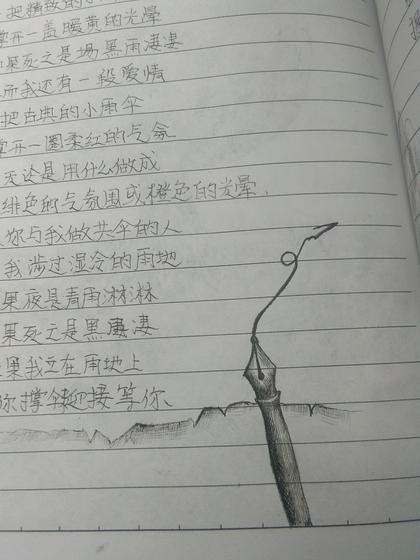 把精致的小
开一盖暖黄的光晕
果死亡是场黑雨凄凄
而我还有一段爱情
把古典的小雨伞
撑开一圈柔红的气氛
无论是用什么做成
绯色的气氛围或橙色的光晕,
你与我做共伞的人
我涉过湿冷的雨地
果夜是青雨淋淋
果死亡是黑凄凄
果我立在雨地上
你撑伞迎接等你